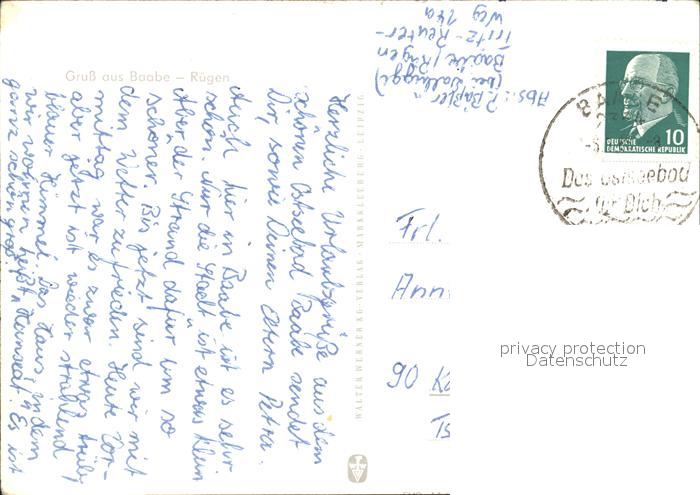 Gruß aus Baabe – Rügen
Herzliche Urlaubsgrüße aus dem
schönen Ostseebad Baabe sendet
Dir, sowie Deinen Eltern Petra.
Auch hier in Baabe ist es sehr
schön. Nur die Stadt ist etwas klein
Aber der Strand dafür um so
schöner. Bis jetzt sind wir mit
dem Wetter zufrieden. Heute Vor-
mittag war es zwar etwas trüb,
aber jetzt ist wieder strahlend
blauer Himmel. Das Haus, in dem
wir wohnen heißt "Hanseat". Es ist
ganz schön groß.
WALTER WERNER KG · VERLAG · MARKKLEEBERG - LEIPZIG
Abs.: P. Bäßler
Baabe/Rügen
Fritz-Reuter-
Weg 24a
DEUTSCHE
DEMOKRATISCHE REPUBLIK
10
BAABE
Das Ostseebad
für Dich
Frl.
Ann
90 K
privacy protection
Datenschutz